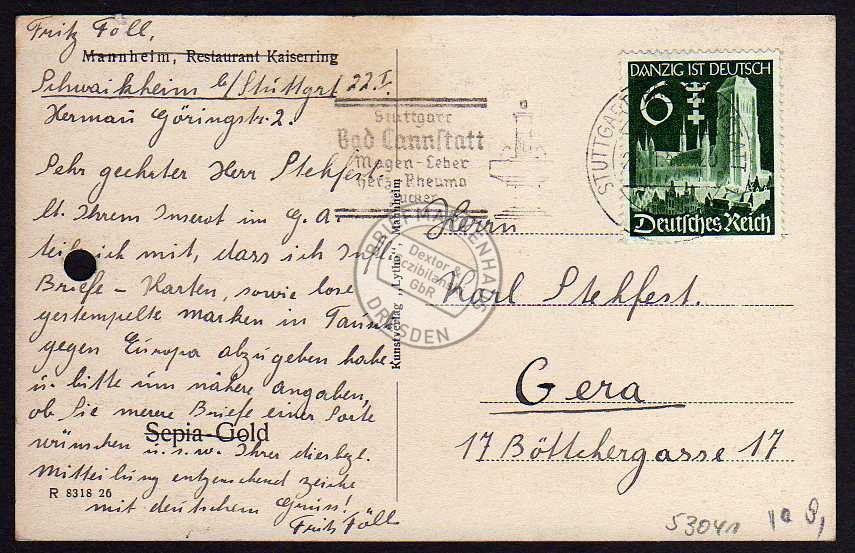 Fritz Föll,
Mannheim, Restaurant Kaiserring
Schwaikheim b/Stuttgart 22.I.
Herman Göringstr. 2.
Sehr geehrter Herr Stehfest.
lt. Ihrem Inserat im G.A.
teile ich mit, dass ich
Briefe - Karten, sowie lose
gestempelte marken in Tausch
gegen Europa abzugeben habe
u. bitte um nähere angaben,
ob Sie mehrere Briefe einer Sorte
wünschen u.s.w. Ihrer diesbzgl.
Mitteilung entgegensehend zeichne
mit deutschem Gruss!
Fritz Föll
Sepia-Gold
R 8318 26
Kunstverlag „Lytho", Mannheim
Stuttgart
Bad Cannstatt
Magen-Leber
Herz-Rheuma
DANZIG IST DEUTSCH
6
Deutsches Reich
STUTTGART
BRIEFMARKENHAUS
Dextor &
Aczibilans
GbR
DRESDEN
Herrn
Karl Stehfest.
Gera
17 Böttchergasse 17
53041